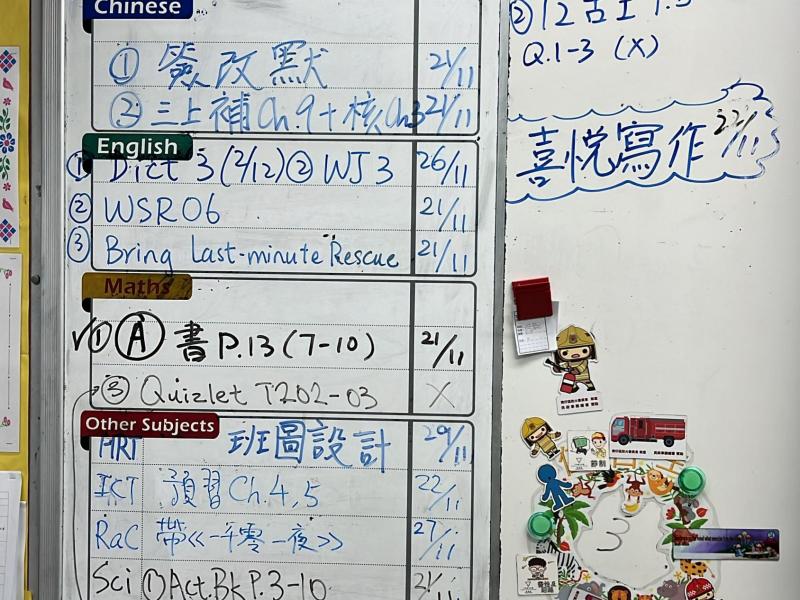 Chinese
① 簽改默 21/11
② 三上補Ch.9+核Ch.3 21/11
English
① Dict 3 (2/12) ② WJ 3 26/11
② WSR06 21/11
③ Bring Last-minute Rescue 21/11
Maths
✓① Ⓐ 書 P.13 (7-10) 21/11
③ Quizlet T202-03 X
Other Subjects
ART 班圖設計 29/11
ICT 預習 Ch.4,5 22/11
RaC 帶《一千零一夜》 27/11
Sci ① Act.Bk P.3-10 21/11
Q.1-3 (X)
喜悅寫作 22/11
節制
3